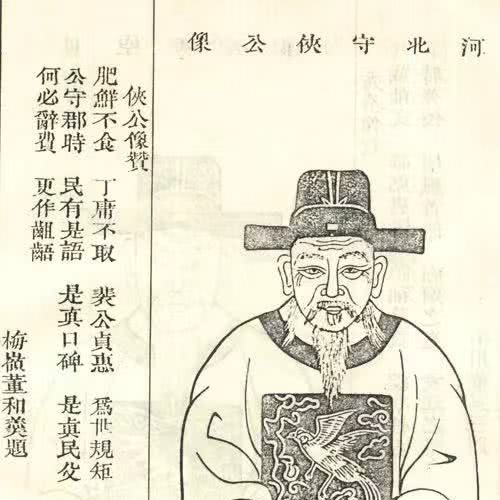 河北守俠公像
俠公像贊
肥鮮不食 丁庸不取 裴公貞惠 爲世規矩
公守郡時 民有是語 是真口碑 是真民父
何必辭費 更作齟齬
梅嶺董和羹題